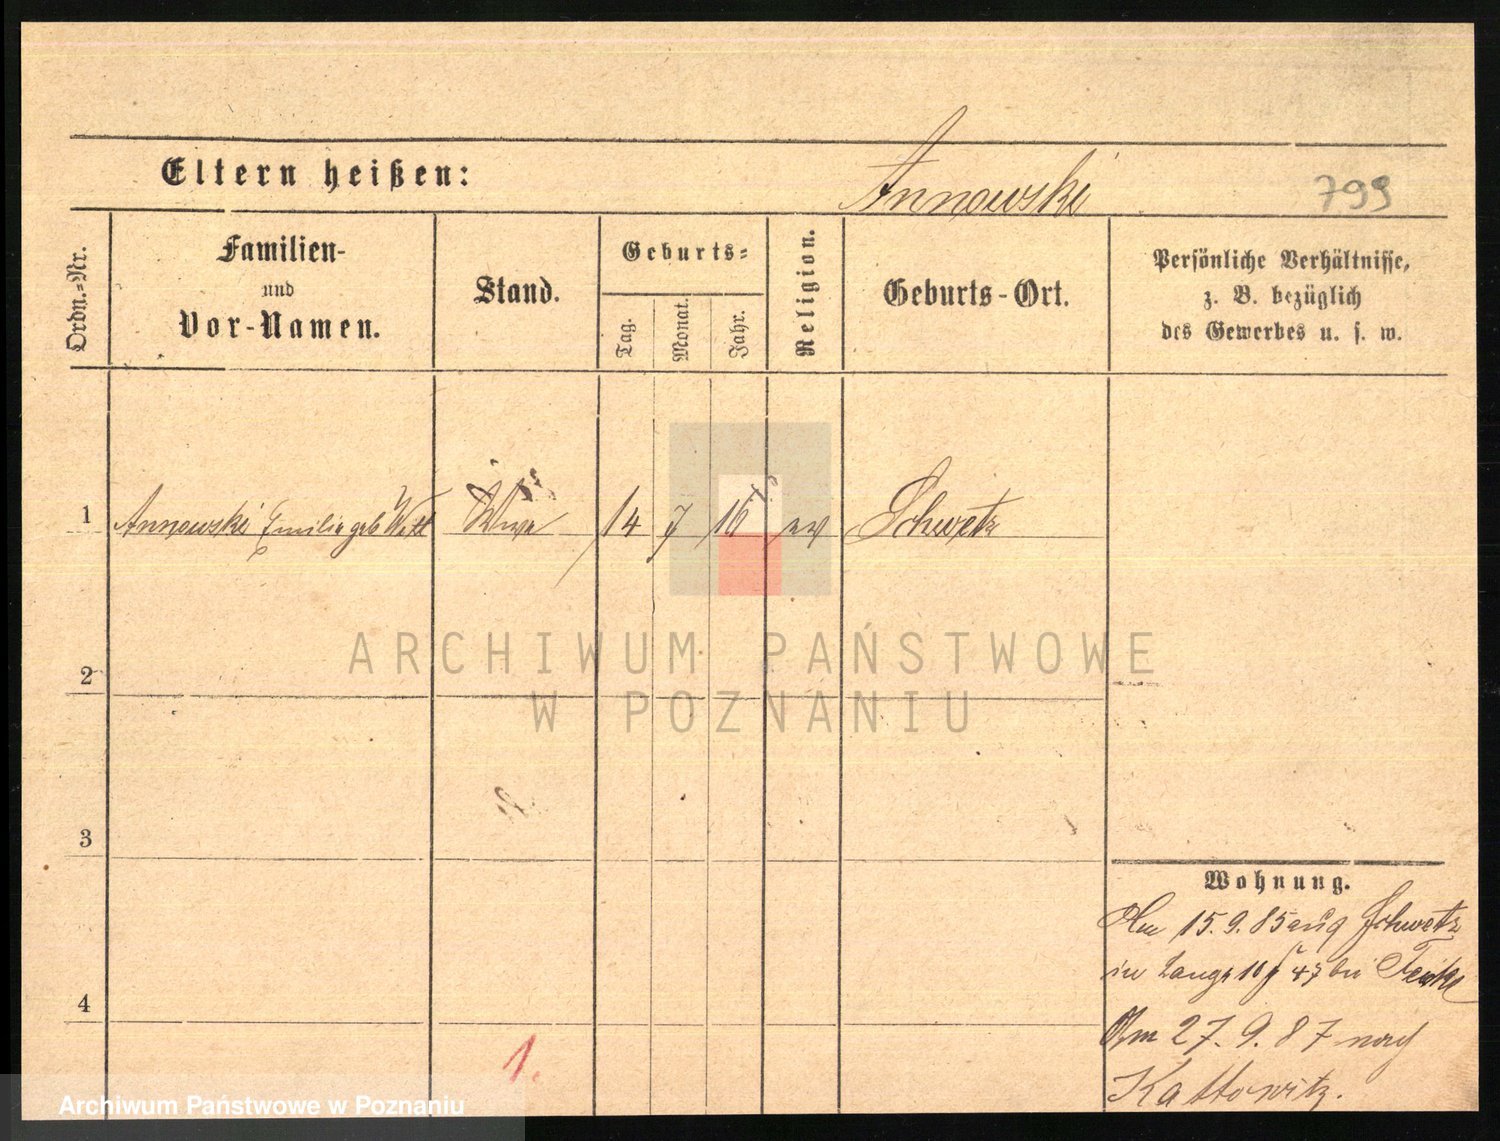 Eltern heißen:
Annowski
799
Ordn.-Nr.
Familien-
und
Vor-Namen.
Stand.
Geburts-
Tag.
Monat.
Jahr.
Religion.
Geburts-Ort.
Persönliche Verhältnisse,
z. B. bezüglich
des Gewerbes u. s. w.
1 Annowski Emilie geb Wwe 14 7 16 ev Schwetz
ARCHIWUM PAŃSTWOWE
W POZNANIU
2
3
Wohnung.
Am 15.9.85 aus Schwetz
in 47 bei
4
Am 27.9.87 nach
Kattowitz.
1.
Archiwum Państwowe w Poznaniu